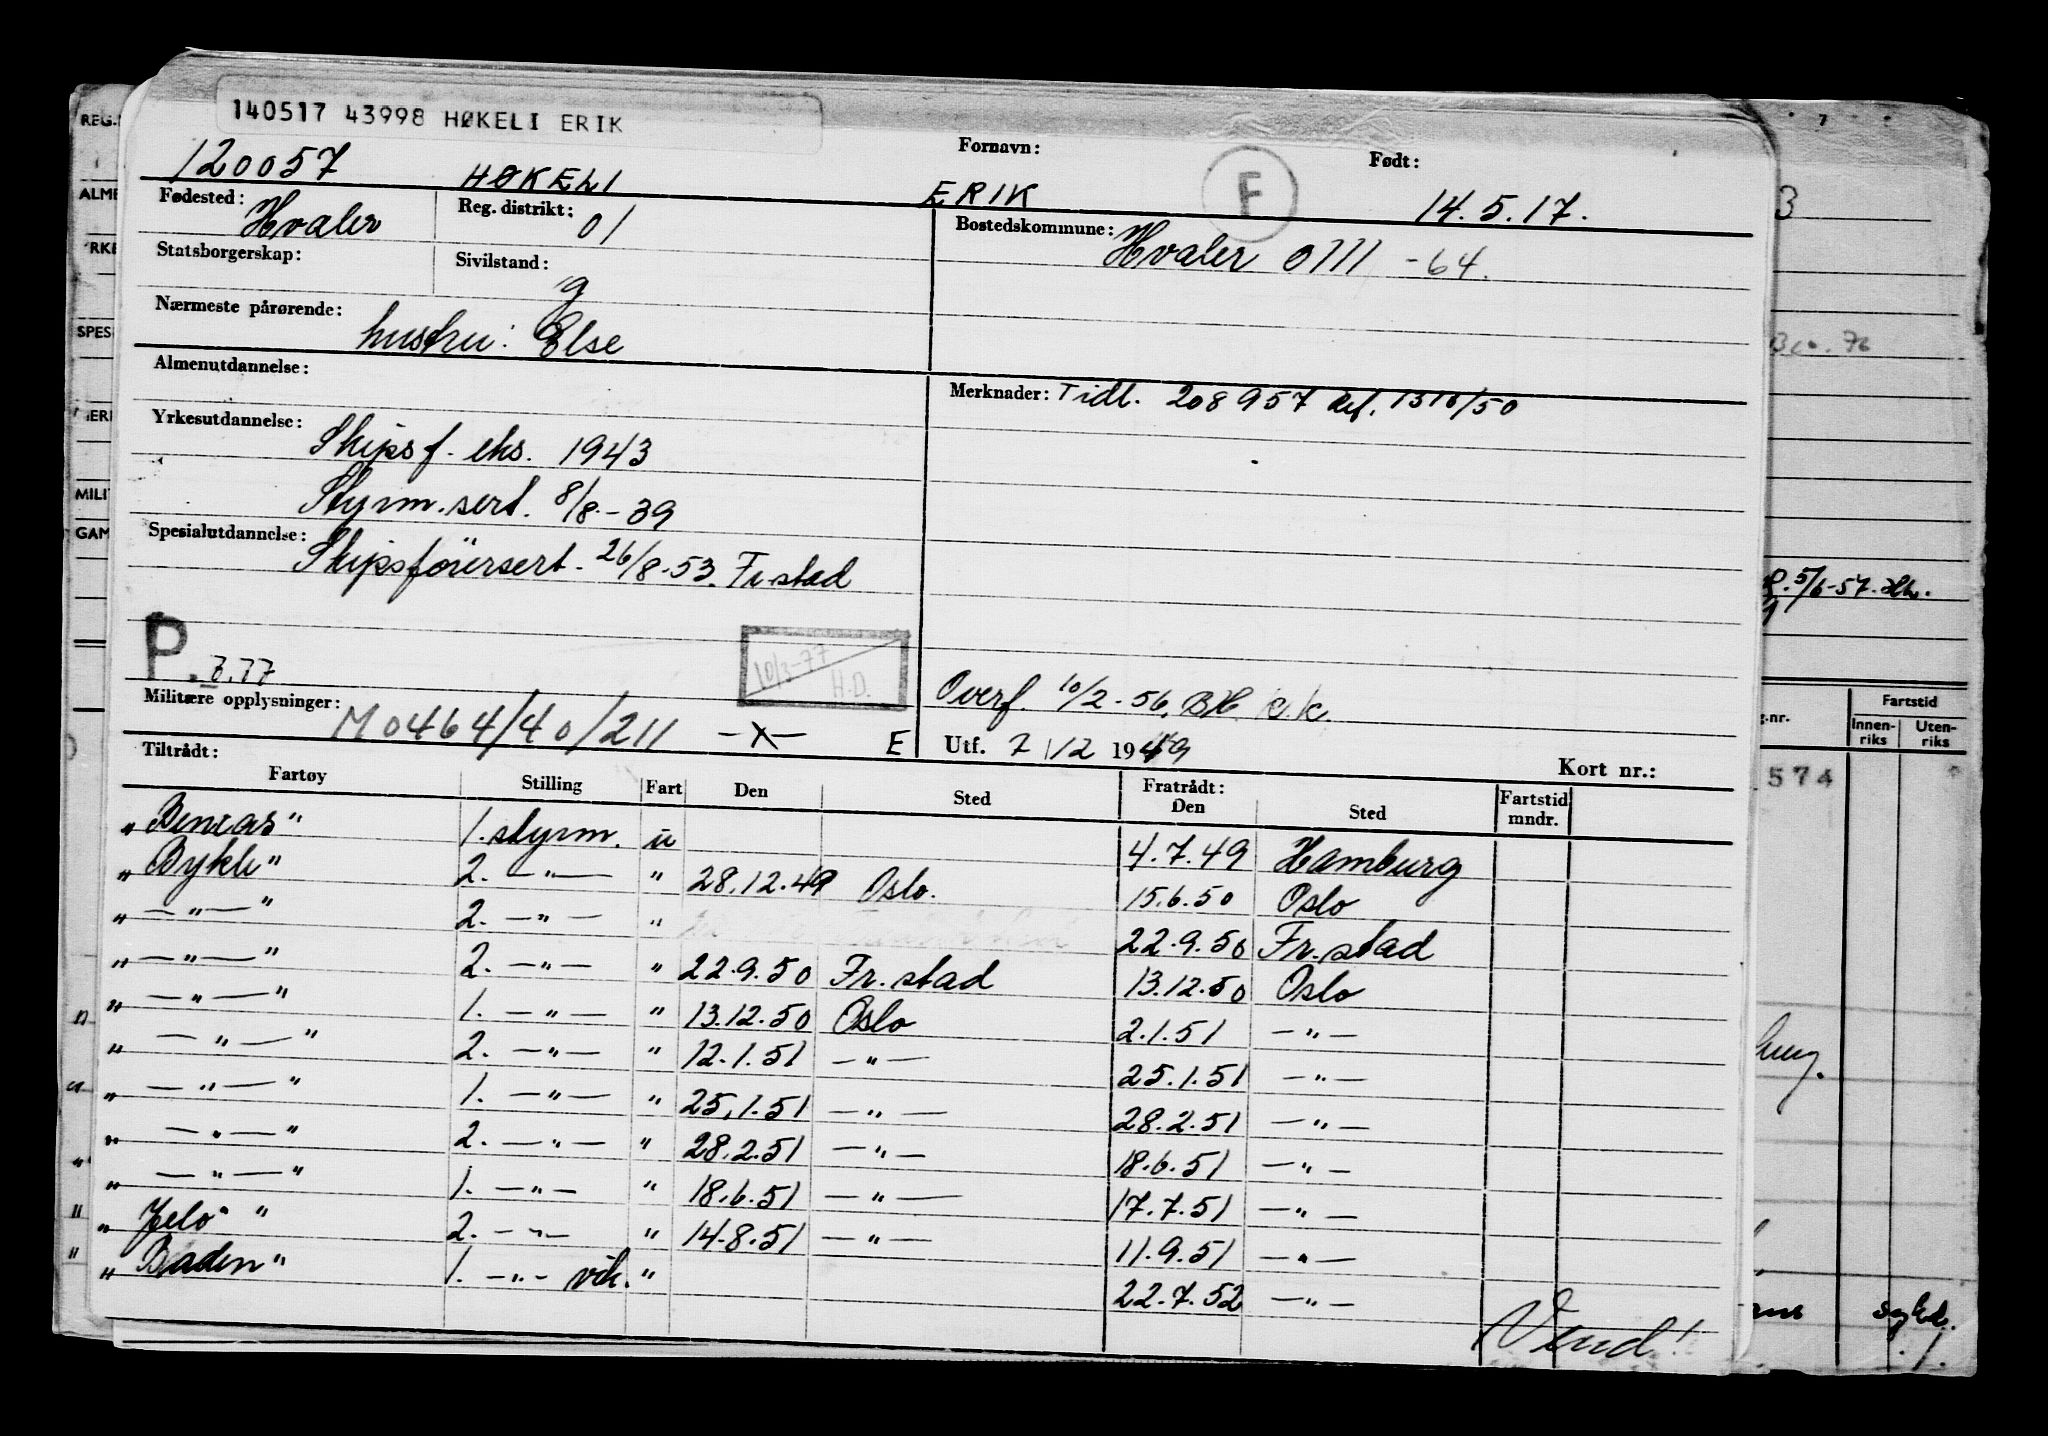 140517 43998 HØKELI ERIK
120057 HØKELI Fornavn: ERIK F Født: 14.5.17.
Fødested: Hvaler Reg. distrikt: 01 Bostedskommune: Hvaler 0111 -64.
Statsborgerskap: Sivilstand: g
Nærmeste pårørende: hustru: Else
Almenutdannelse:
Merknader: Tidl. 208957 1310/50
Yrkesutdannelse: Skipsf. eks. 1943
Styrm. sert. 8/8-39
Spesialutdannelse: Skipsförersert. 26/8.53. Fr.stad
P. 3.77
10/3-77 H.D.
Militære opplysninger: M0464/40/211 -x- E
Overf. 10/2-56. BH k.k.
Utf. 7/12 1949
Tiltrådt: Kort nr.:
Fartøy Stilling Fart Den Sted Fratrådt: Den Sted Fartstid mndr.
„Benzas" 1. styrm. u 4.7.49 Hamburg
„Bykle" 2. —"— " 28.12.49 Oslo. 15.6.50 Oslo
„—"—" 2. —"— " 22.9.50 Fr.stad
„—"—" 2. —"— " 22.9.50 Fr.stad 13.12.50 Oslo
„—"—" 1. —"— " 13.12.50 Oslo 2.1.51 —"—
„—"—" 2. —"— " 12.1.51 —"— 25.1.51 —"—
„—"—" 1. —"— " 25.1.51 —"— 28.2.51 —"—
„—"—" 2. —"— " 28.2.51 —"— 18.6.51 —"—
„—"—" 1. —"— " 18.6.51 —"— 17.7.51 —"—
„Jelö" 2. —"— " 14.8.51 —"— 11.9.51 —"—
„Baden" 1. —"— vik. " 22.7.52 —"—
Vend!
REG.
ALME
YRKE
SPES
MILI
GAM
3
5/6-57.
g.nr. Fartstid
Innen-riks Uten-riks
574
sykd.